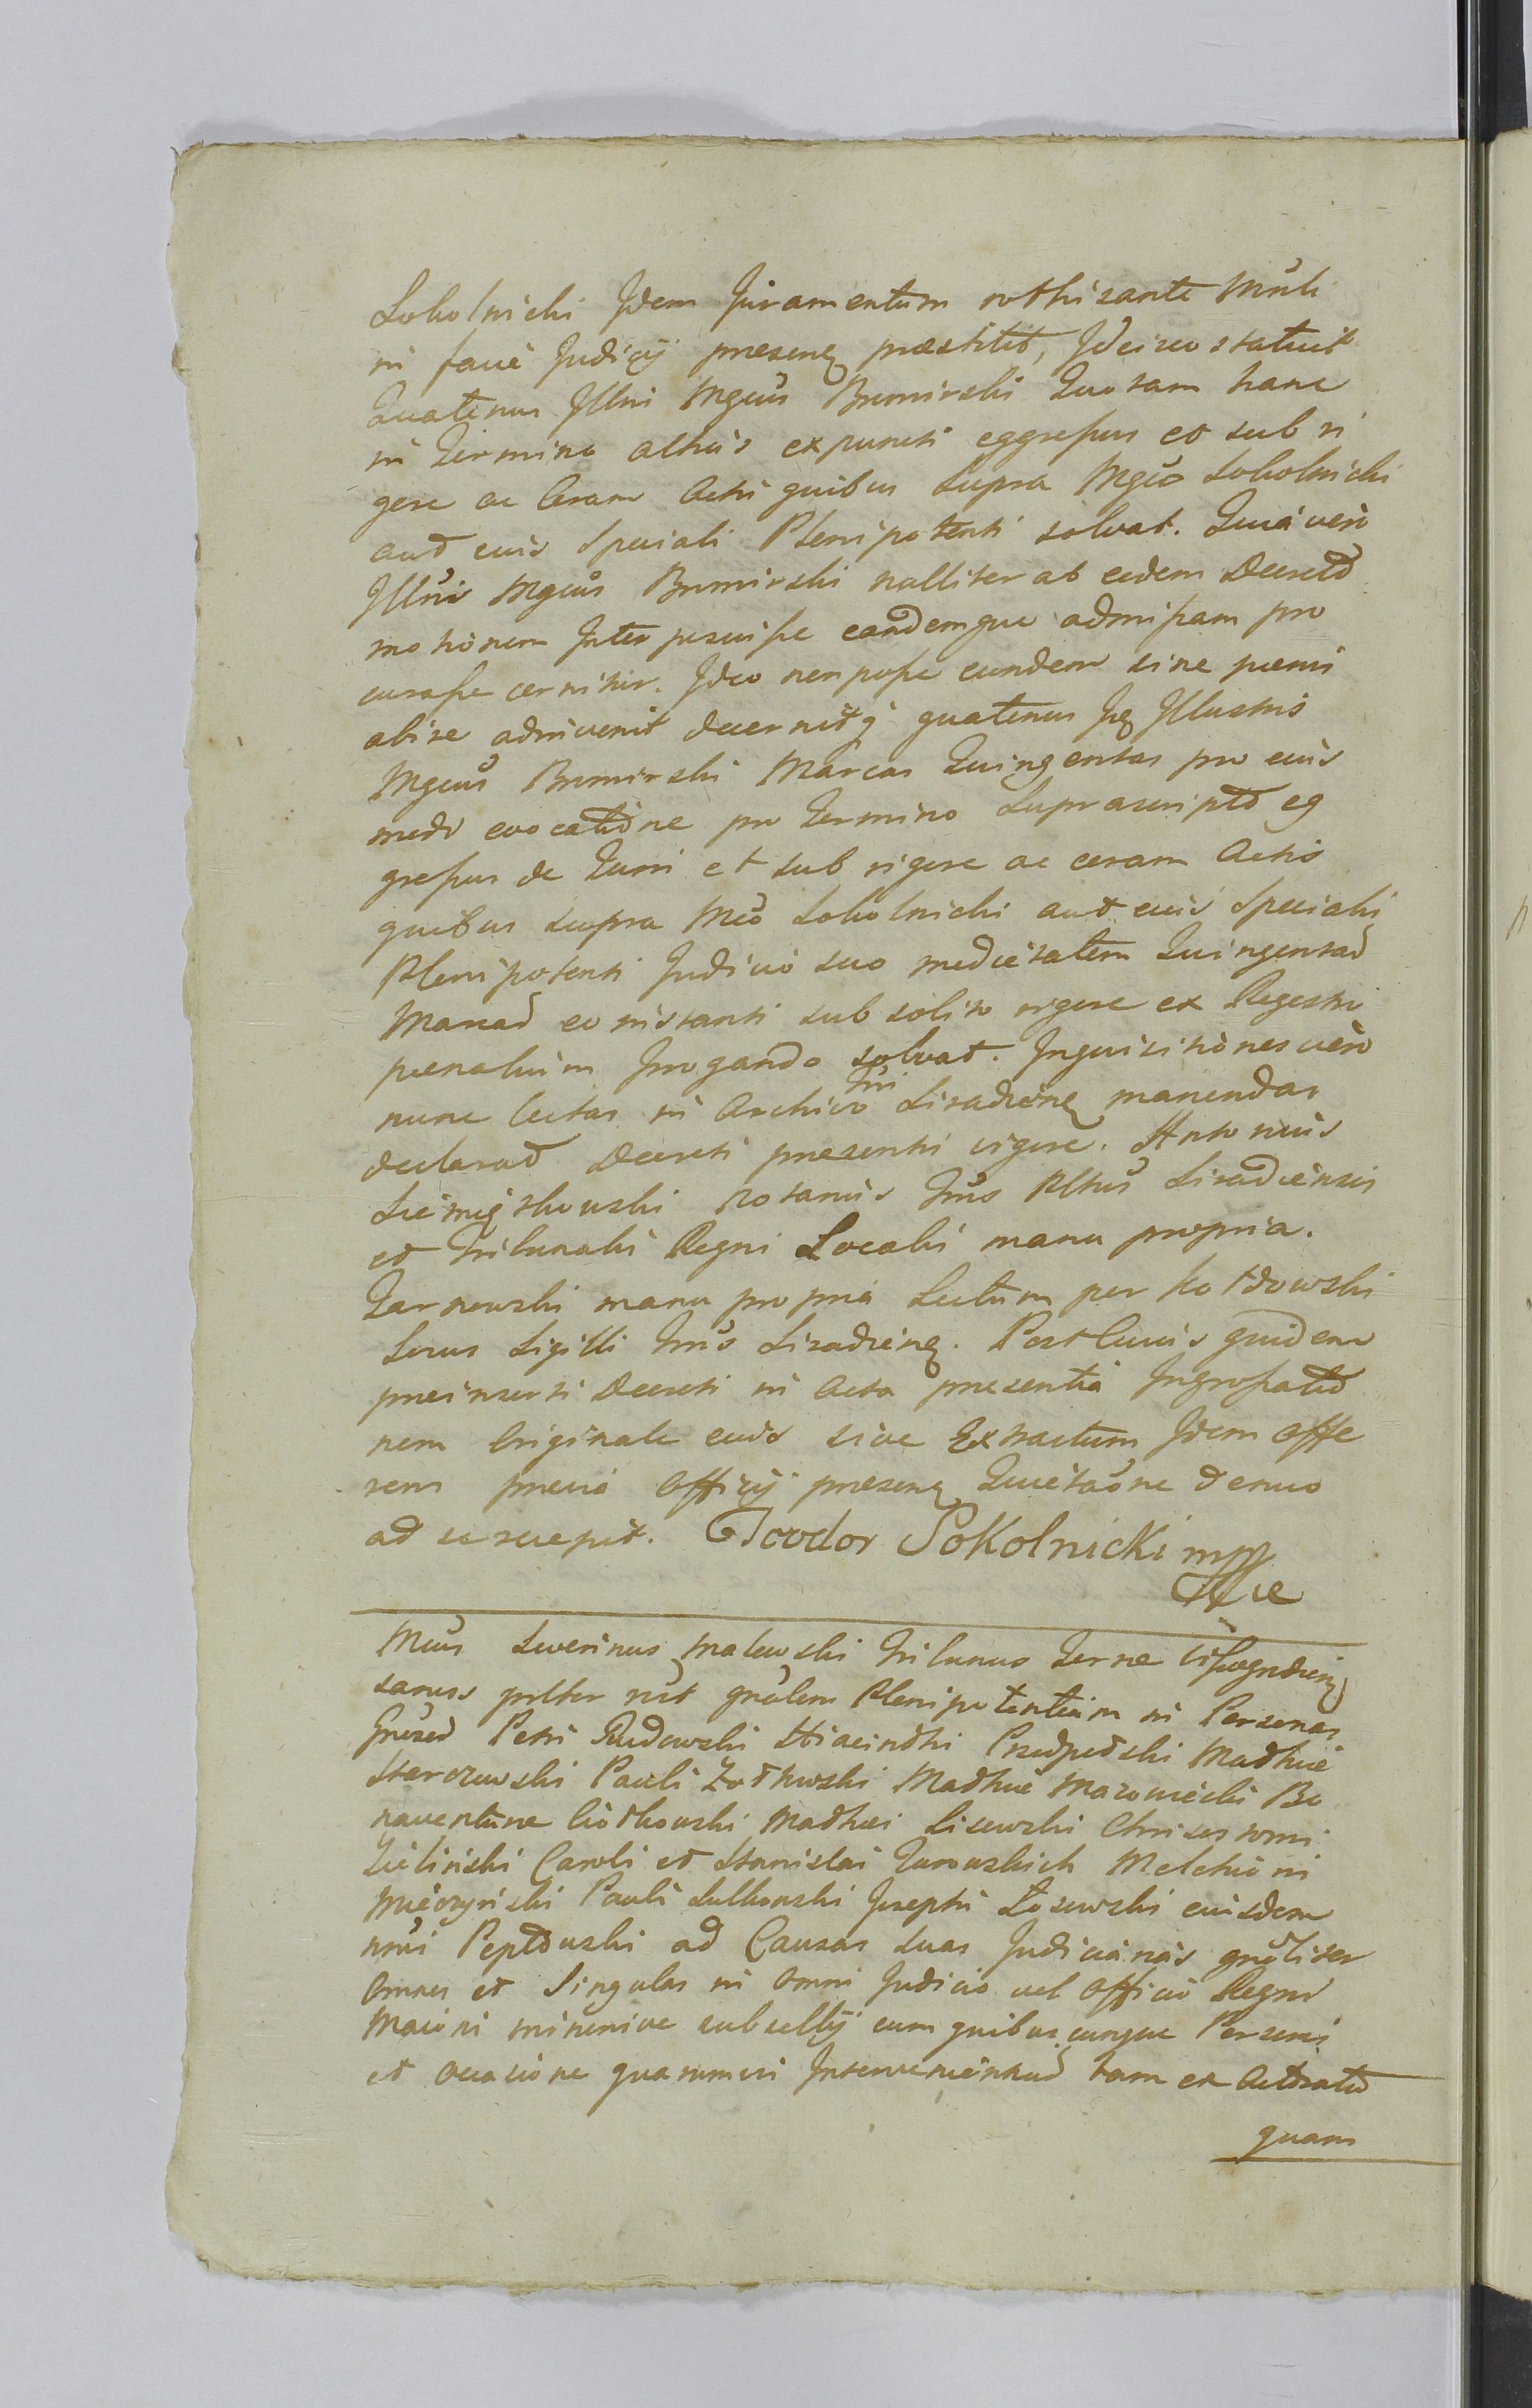 Sokolnicki Idem Juramentum rothizante Mnli
in facie Judicij presenq praestitit, Idcirco statuit
Quatenus Illris Mgcus Bnmirski Quotam hanc
in Termino altius expuncti eggressus et sub vi
gore ac Coram Actis quibus Supra Mgco Sokolnicki
aut eius Speciali Plenipotenti solvat. Quia vero
Illris Mgcus Bnmirski nulliter ab eodem Decreto
motionem Interposuisse eandemque admissam pro
curasse cernitur. Ideo non posse eundem sine poenis
abire adinvenit decernitq quatenus Iq Illustris
Mgcus Bnmirski Marcas Quingentas pro eius
modi evocatione pro Termino Suprascripto eg
gressus de Turri et sub rigore ac coram Actis
quibus supra Mco Sokolnicki aut eius Speciali
Plenipotenti Judicio suo medietatem Quingentar
Marcar eo instanti sub solito rigore ex Regestro
poenalium Irrogando solvat. Inquisitiones vero
nunc lectas in Archivo Tri Siradienq manendas
declarat Decreti presentis vigore. Antonius
Siemiątkowski Notarius Trris Pltus Siradiensis
et Tribunalis Regni Localis manu propria.
Tarnowski manu propria Lectum per Kotdowski
Locus Sigilli Trris Siradienq. Post Cuius quidem
preinserti Decreti in Acta presentia Ingrossatio
nem Originale eius sive Extractum Idem Offe
rens previa Officij presenq Quietaone denuo
ad se recepit. Teodor Sokolnicki mpp

Mcus Severinus Malewski Tribunus Terrae Wissogrdienq
sanus prltter rut gnalem Plenipotentiam in Personas
Gnosor Petri Rudowski Hiacinthi Matthiae
Sterczewski Pauli Zotkowski Matthiae Mazowiecki Bo
naventurae Ciotkowski Mathei Lisewski Chrisostomi
Zielinski Caroli et Stanislai Jarowskich Melchioris
Mieczyński Pauli Sulkowski Josephi Łosewski eiusdem
nris Peptowski ad Causas suas Judiciarias gnaliter
Omnes et Singulas in Omni Judicio vel Officio Regni
Maioris minorisve subsellij cum quibuscunque Personis
et occasione quarumvis Intervenientiur tam ex Actoratu
quam